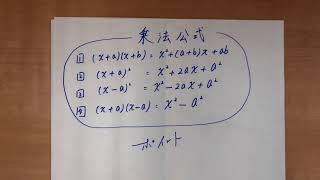 乗法公式
1 (x+a)(x+b) = x²+(a+b)x+ab
2 (x+a)² = x²+2ax+a²
3 (x-a)² = x²-2ax+a²
4 (x+a)(x-a) = x²-a²
ポイント